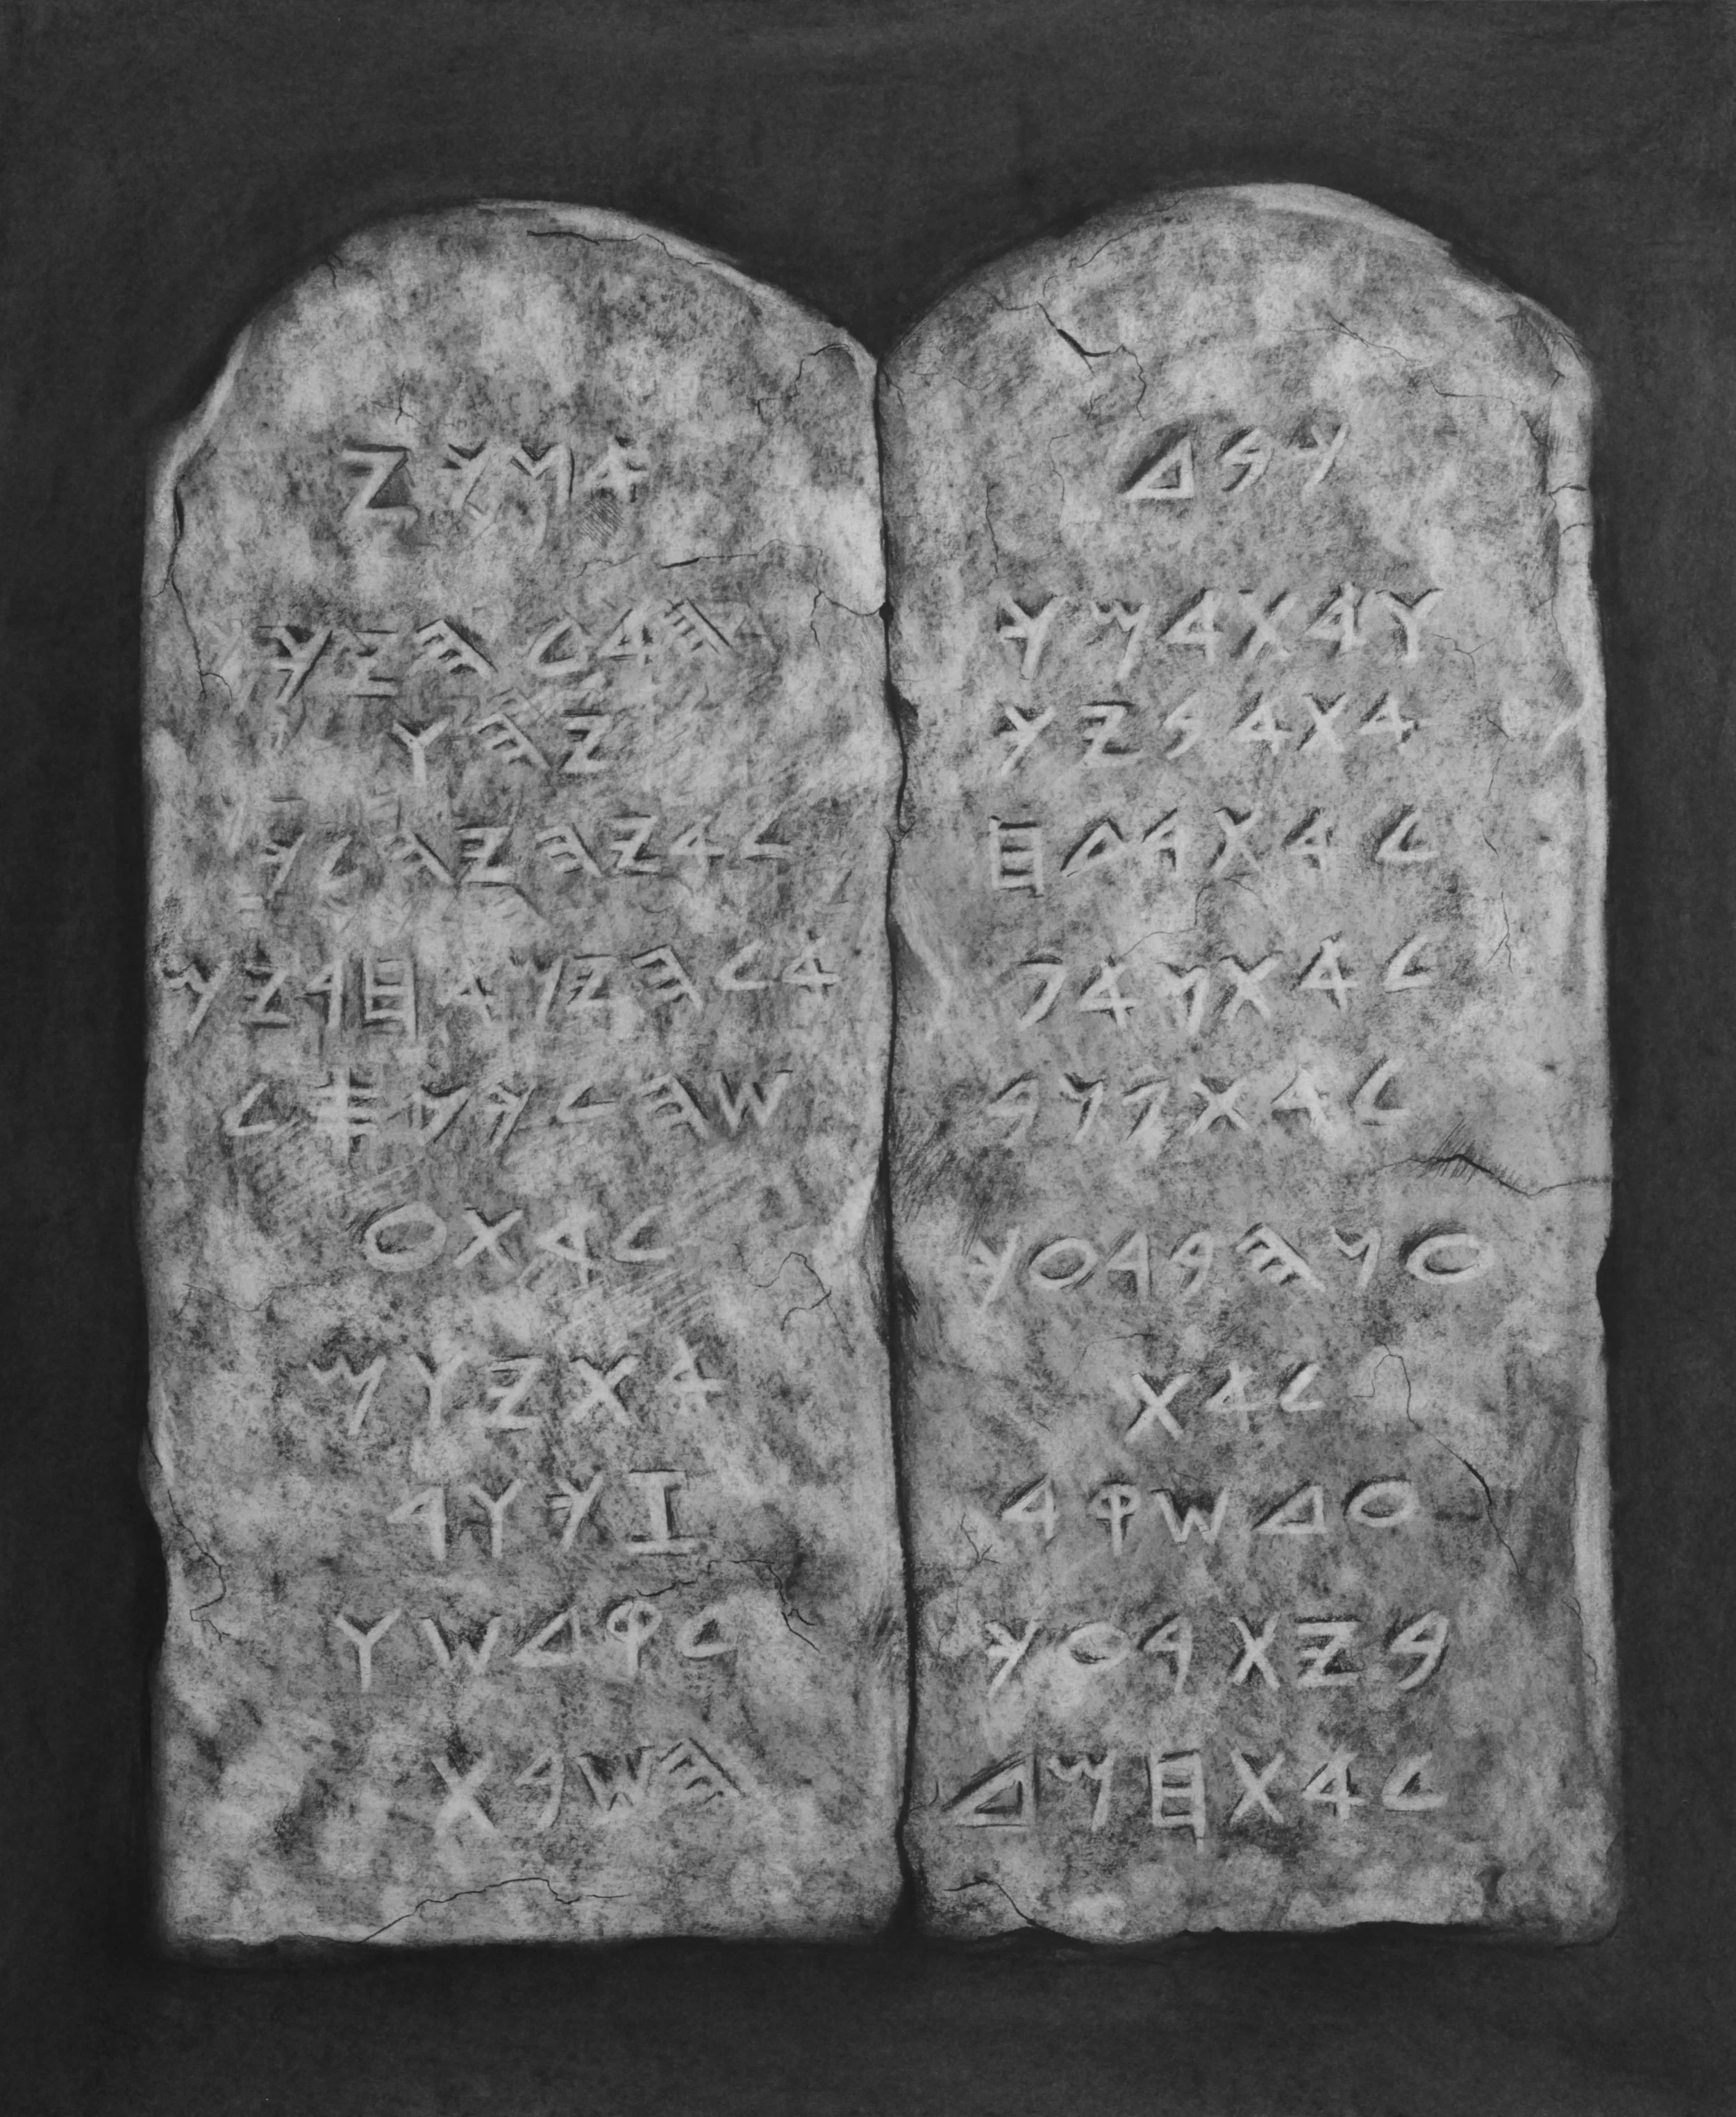 𐤀𐤍𐤊𐤉
𐤄 𐤀𐤋𐤄𐤉𐤊
𐤉𐤄𐤅
𐤋𐤀 𐤉𐤄𐤉𐤄 𐤋𐤊
𐤀𐤋𐤄𐤉𐤌 𐤀𐤇𐤓𐤉𐤌
𐤔𐤄 𐤋𐤊 𐤐𐤎𐤋
𐤋𐤀 𐤕𐤏
𐤀𐤕 𐤉𐤅𐤌
𐤆𐤊𐤅𐤓
𐤋𐤒𐤃𐤔𐤅
𐤄𐤔𐤁𐤕
𐤊𐤁𐤃
𐤅𐤀𐤕 𐤀𐤌𐤊
𐤀𐤕 𐤀𐤁𐤉𐤊
𐤋𐤀 𐤕𐤓𐤑𐤇
𐤋𐤀 𐤕𐤍𐤀𐤐
𐤋𐤀 𐤕𐤂𐤍𐤁
𐤏𐤍𐤄 𐤁𐤓𐤏𐤊
𐤋𐤀 𐤕
𐤏𐤃 𐤔𐤒𐤓
𐤁𐤉𐤕 𐤓𐤏𐤊
𐤋𐤀 𐤕𐤇𐤌𐤃